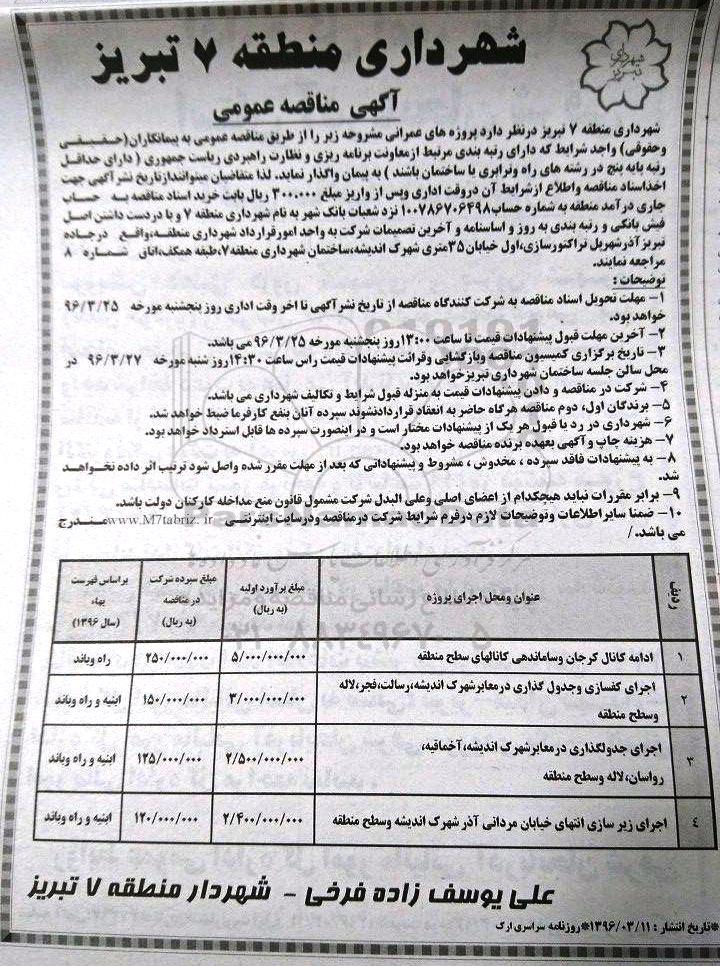 شهرداری تبریز
شهرداری منطقه ۷ تبریز
آگهی مناقصه عمومی
شهرداری منطقه ۷ تبریز درنظر دارد پروژه های عمرانی مشروحه زیر را از طریق مناقصه عمومی به پیمانکاران(حقیقی
وحقوقی) واجد شرایط که دارای رتبه بندی مرتبط ازمعاونت برنامه ریزی و نظارت راهبردی ریاست جمهوری ( دارای حداقل
رتبه پایه پنج در رشته های راه وترابری یا ساختمان باشند ) به پیمان واگذار نماید. لذا متقاضیان میتوانندازتاریخ نشرآگهی جهت
اخذاسناد مناقصه واطلاع ازشرایط آن دروقت اداری وپس از واریز مبلغ ۳۰۰.۰۰۰ ریال بابت خرید اسناد مناقصه به حساب
جاری درآمد منطقه به شماره حساب۱۰۰۷۸۶۷۰۶۴۹۸ نزد شعبات بانک شهر به نام شهرداری منطقه ۷ و با دردست داشتن اصل
فیش بانکی و رتبه بندی به روز و اساسنامه و آخرین تصمیمات شرکت به واحد امورقرارداد شهرداری منطقه،واقع درجاده
تبریزآذرشهرپل تراکتورسازی،اول خیابان۳۵متری شهرک اندیشه،ساختمان شهرداری منطقه۷،طبقه همکف،اتاق شماره ۸
مراجعه نمایند.
توضیحات :
۱- مهلت تحویل اسناد مناقصه به شرکت کنندگاه مناقصه از تاریخ نشرآگهی تا اخر وقت اداری روز پنجشنبه مورخه ۹۶/۳/۲۵
خواهد بود.
۲- آخرین مهلت قبول پیشنهادات قیمت تا ساعت ۱۳:۰۰روز پنجشنبه مورخه ۹۶/۳/۲۵ می باشد.
۳- تاریخ برگزاری کمیسیون مناقصه وبازگشایی وقرائت پیشنهادات قیمت راس ساعت ۱۴:۳۰روز شنبه مورخه ۹۶/۳/۲۷ در
محل سالن جلسه ساختمان شهرداری تبریزخواهد بود.
۴- شرکت در مناقصه و دادن پیشنهادات قیمت به منزله قبول شرایط و تکالیف شهرداری می باشد.
۵- برندگان اول، دوم مناقصه هرگاه حاضر به انعقاد قراردادنشوند سپرده آنان بنفع کارفرما ضبط خواهد شد.
۶- شهرداری در رد یا قبول هر یک از پیشنهادات مختار است و در اینصورت سپرده ها قابل استرداد خواهد بود.
۷- هزینه چاپ وآگهی بعهده برنده مناقصه خواهد بود.
۸- به پیشنهادات فاقد سپرده ، مخدوش ، مشروط و پیشنهاداتی که بعد از مهلت مقرر شده واصل شود ترتیب اثر داده نخواهد
شد.
۹- برابر مقررات نباید هیچکدام از اعضای اصلی وعلی البدل شرکت مشمول قانون منع مداخله کارکنان دولت باشد.
۱۰- ضمنا سایراطلاعات وتوضیحات لازم درفرم شرایط شرکت درمناقصه ودرسایت اینترنتی www.M7tabriz. ir مندرج
می باشد./
ردیف | عنوان ومحل اجرای پروژه | مبلغ برآورد اولیه (به ریال) | مبلغ سپرده شرکت در مناقصه (به ریال) | براساس فهرست بهاء (سال ۱۳۹۶)
۱ | ادامه کانال کرجان وساماندهی کانالهای سطح منطقه | ۵/۰۰۰/۰۰۰/۰۰۰ | ۲۵۰/۰۰۰/۰۰۰ | راه وباند
۲ | اجرای کفسازی وجدول گذاری درمعابرشهرک اندیشه،رسالت،فجر،لاله وسطح منطقه | ۳/۰۰۰/۰۰۰/۰۰۰ | ۱۵۰/۰۰۰/۰۰۰ | ابنیه و راه وباند
۳ | اجرای جدولگذاری درمعابرشهرک اندیشه،آخماقیه، رواسان،لاله وسطح منطقه | ۲/۵۰۰/۰۰۰/۰۰۰ | ۱۲۵/۰۰۰/۰۰۰ | ابنیه و راه وباند
۴ | اجرای زیر سازی انتهای خیابان مردانی آذر شهرک اندیشه وسطح منطقه | ۲/۴۰۰/۰۰۰/۰۰۰ | ۱۲۰/۰۰۰/۰۰۰ | ابنیه و راه وباند
علی یوسف زاده فرخی - شهردار منطقه ۷ تبریز
*تاریخ انتشار : ۱۳۹۶/۰۳/۱۱*روزنامه سراسری ارک